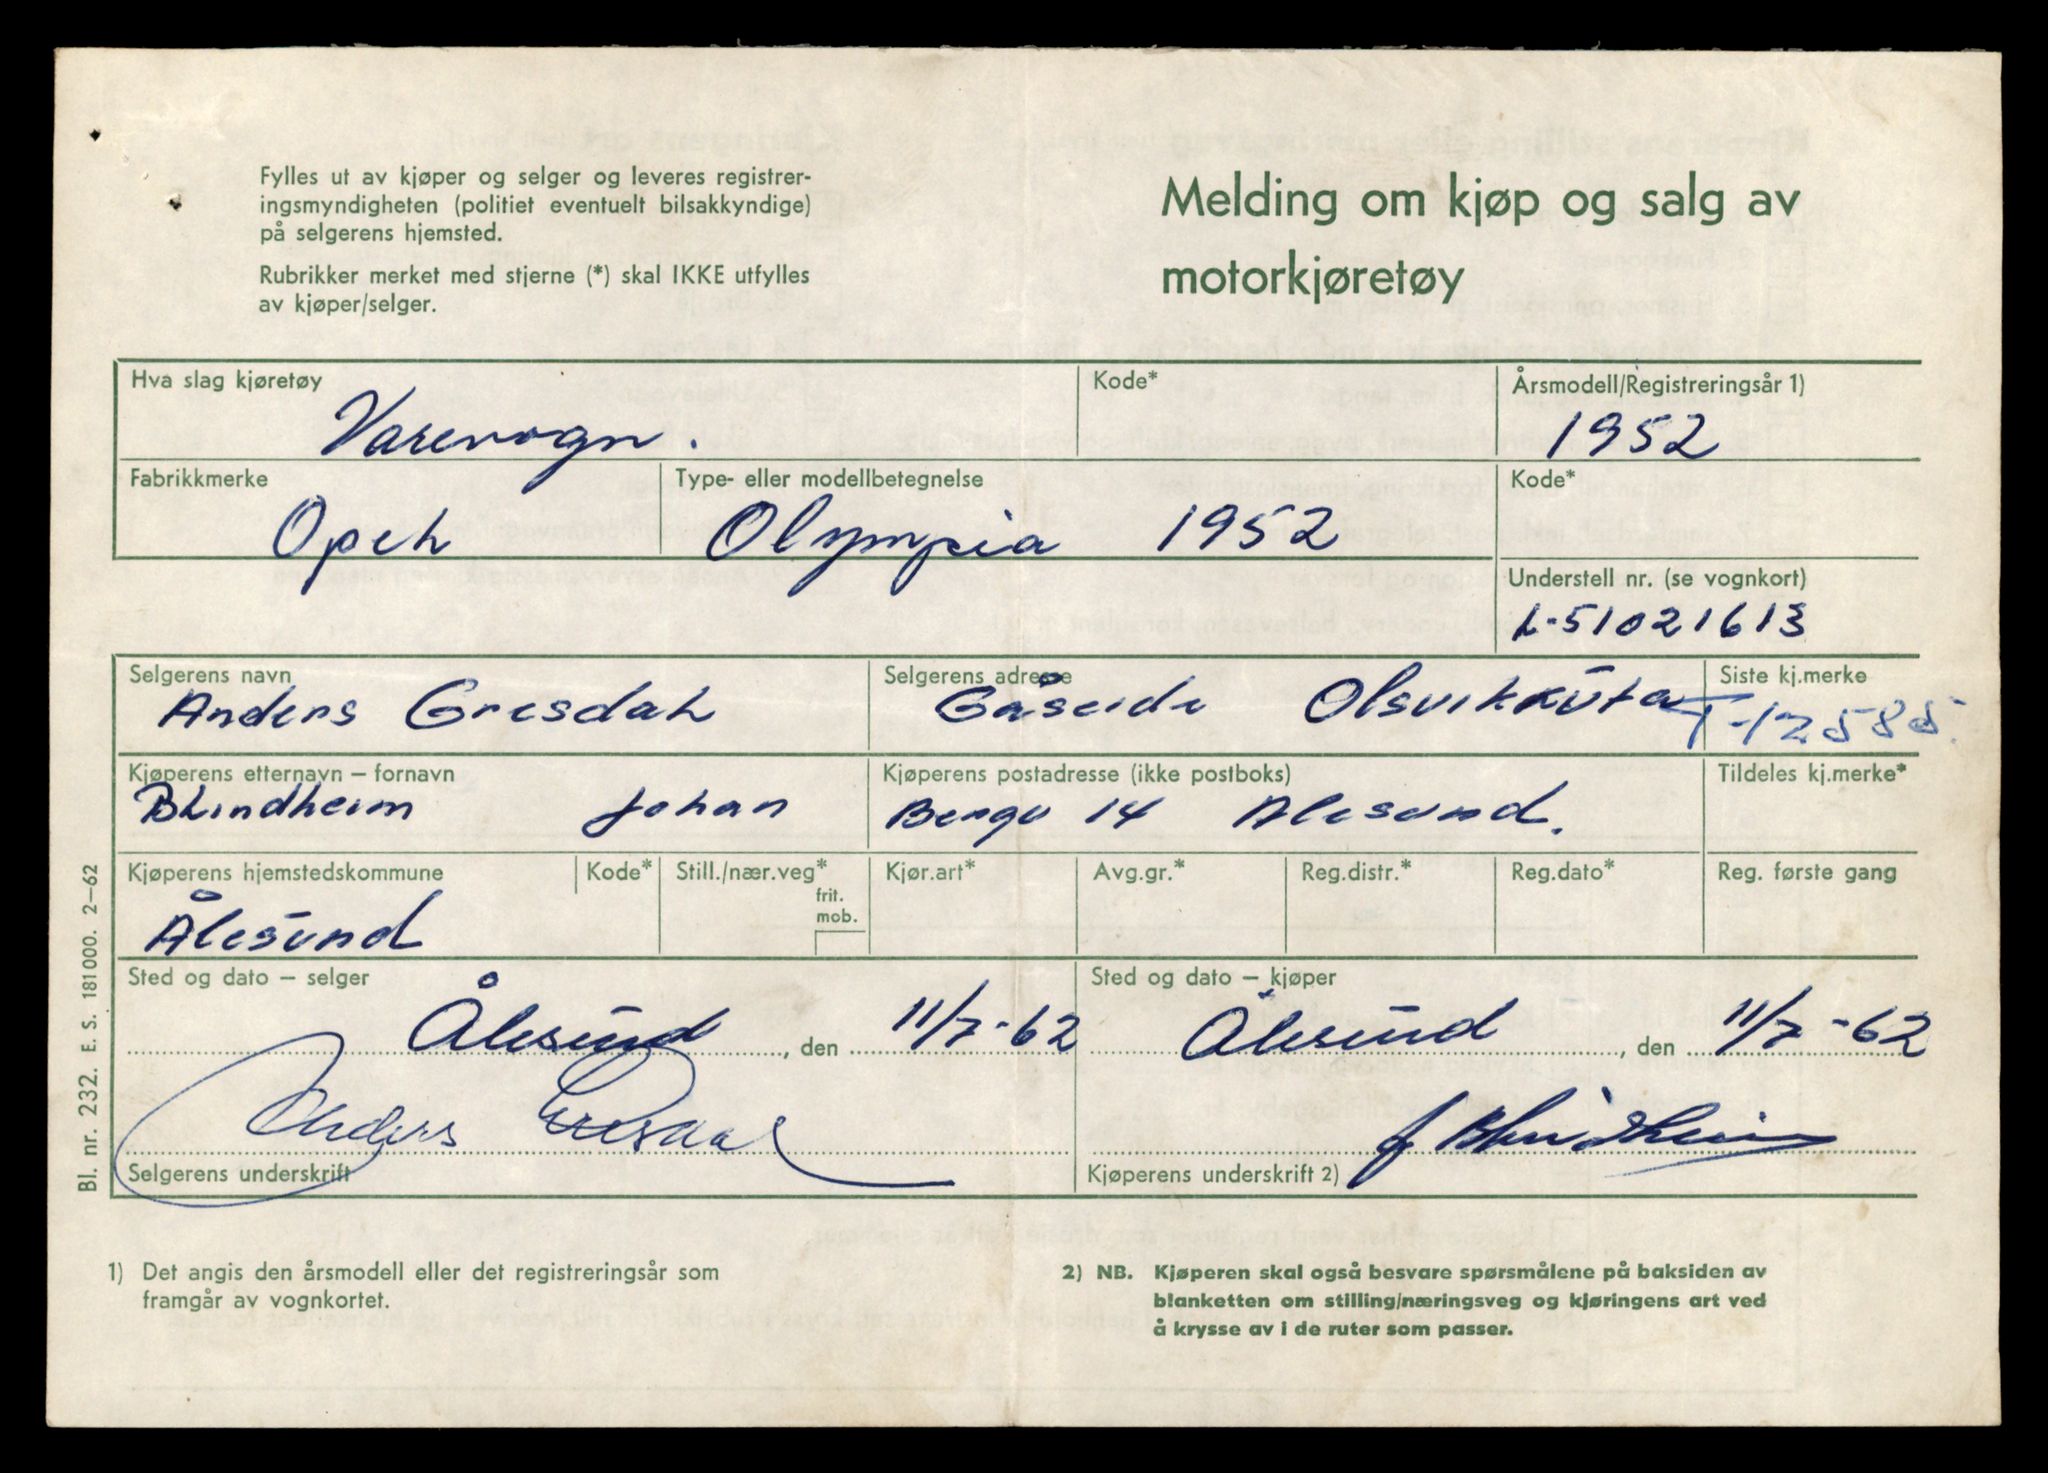 Fylles ut av kjøper og selger og leveres registrer-
ingsmyndigheten (politiet eventuelt bilsakkyndige)
på selgerens hjemsted.
Rubrikker merket med stjerne (*) skal IKKE utfylles
av kjøper/selger.
Melding om kjøp og salg av
motorkjøretøy
Hva slag kjøretøy Kode* Årsmodell/Registreringsår 1)
Varevogn. 1952
Fabrikkmerke Type- eller modellbetegnelse Kode*
Opel Olympia 1952
Understell nr. (se vognkort)
L-51021613
Selgerens navn Selgerens adresse Siste kj.merke
Anders Gresdal Gåseide T-12585.
Kjøperens etternavn – fornavn Kjøperens postadresse (ikke postboks) Tildeles kj.merke*
Blindheim Johan 14 Alesund.
Kjøperens hjemstedskommune Kode* Still./nær.veg* Kjør.art* Avg.gr.* Reg.distr.* Reg.dato* Reg. første gang
frit.
mob.
Ålesund
Sted og dato – selger Sted og dato – kjøper
Ålesund, den 11/7-62 Ålesund, den 11/7-62
Anders Gresdal J Blindheim
Selgerens underskrift Kjøperens underskrift 2)
Bl. nr. 232. E. S. 181000. 2–62
1) Det angis den årsmodell eller det registreringsår som
framgår av vognkortet.
2) NB. Kjøperen skal også besvare spørsmålene på baksiden av
blanketten om stilling/næringsveg og kjøringens art ved
å krysse av i de ruter som passer.